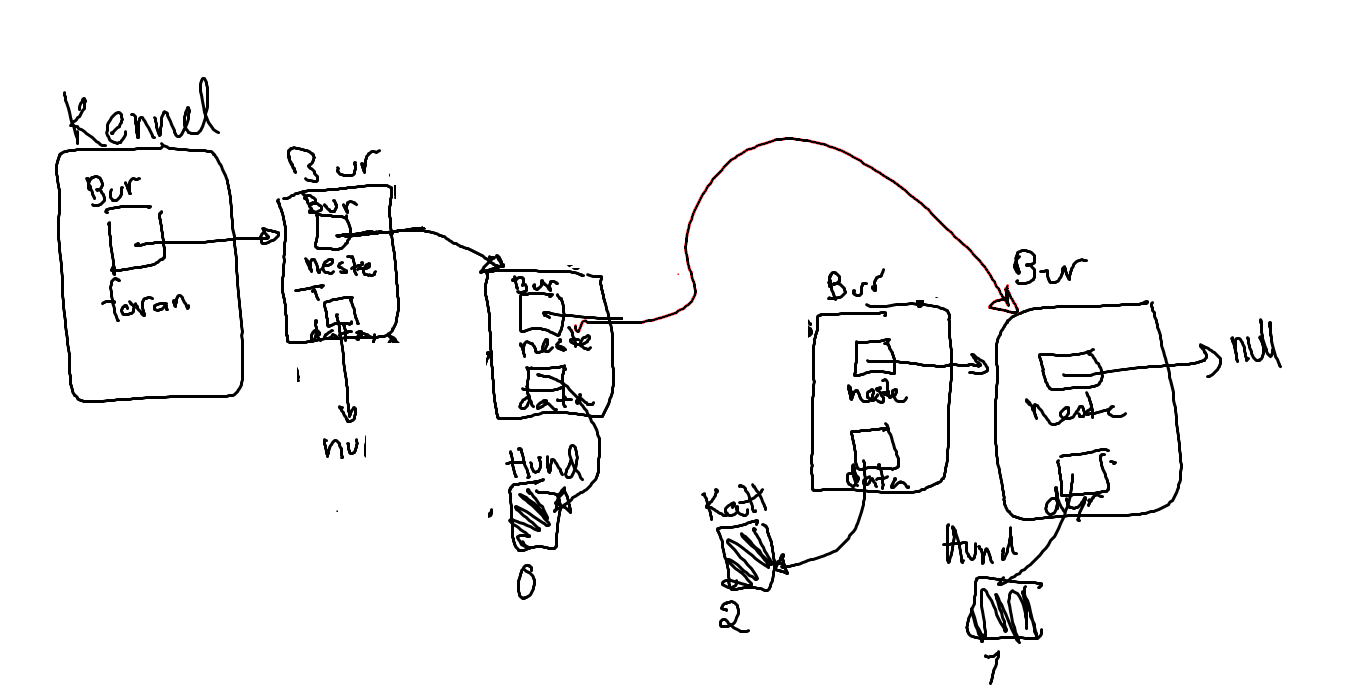 Kennel
Bur
foran
Bur
Bur
neste
T
data
null
Bur
neste
data
Hund
0
Bur
neste
data
Katt
2
Bur
neste
dyr
null
Hund
1